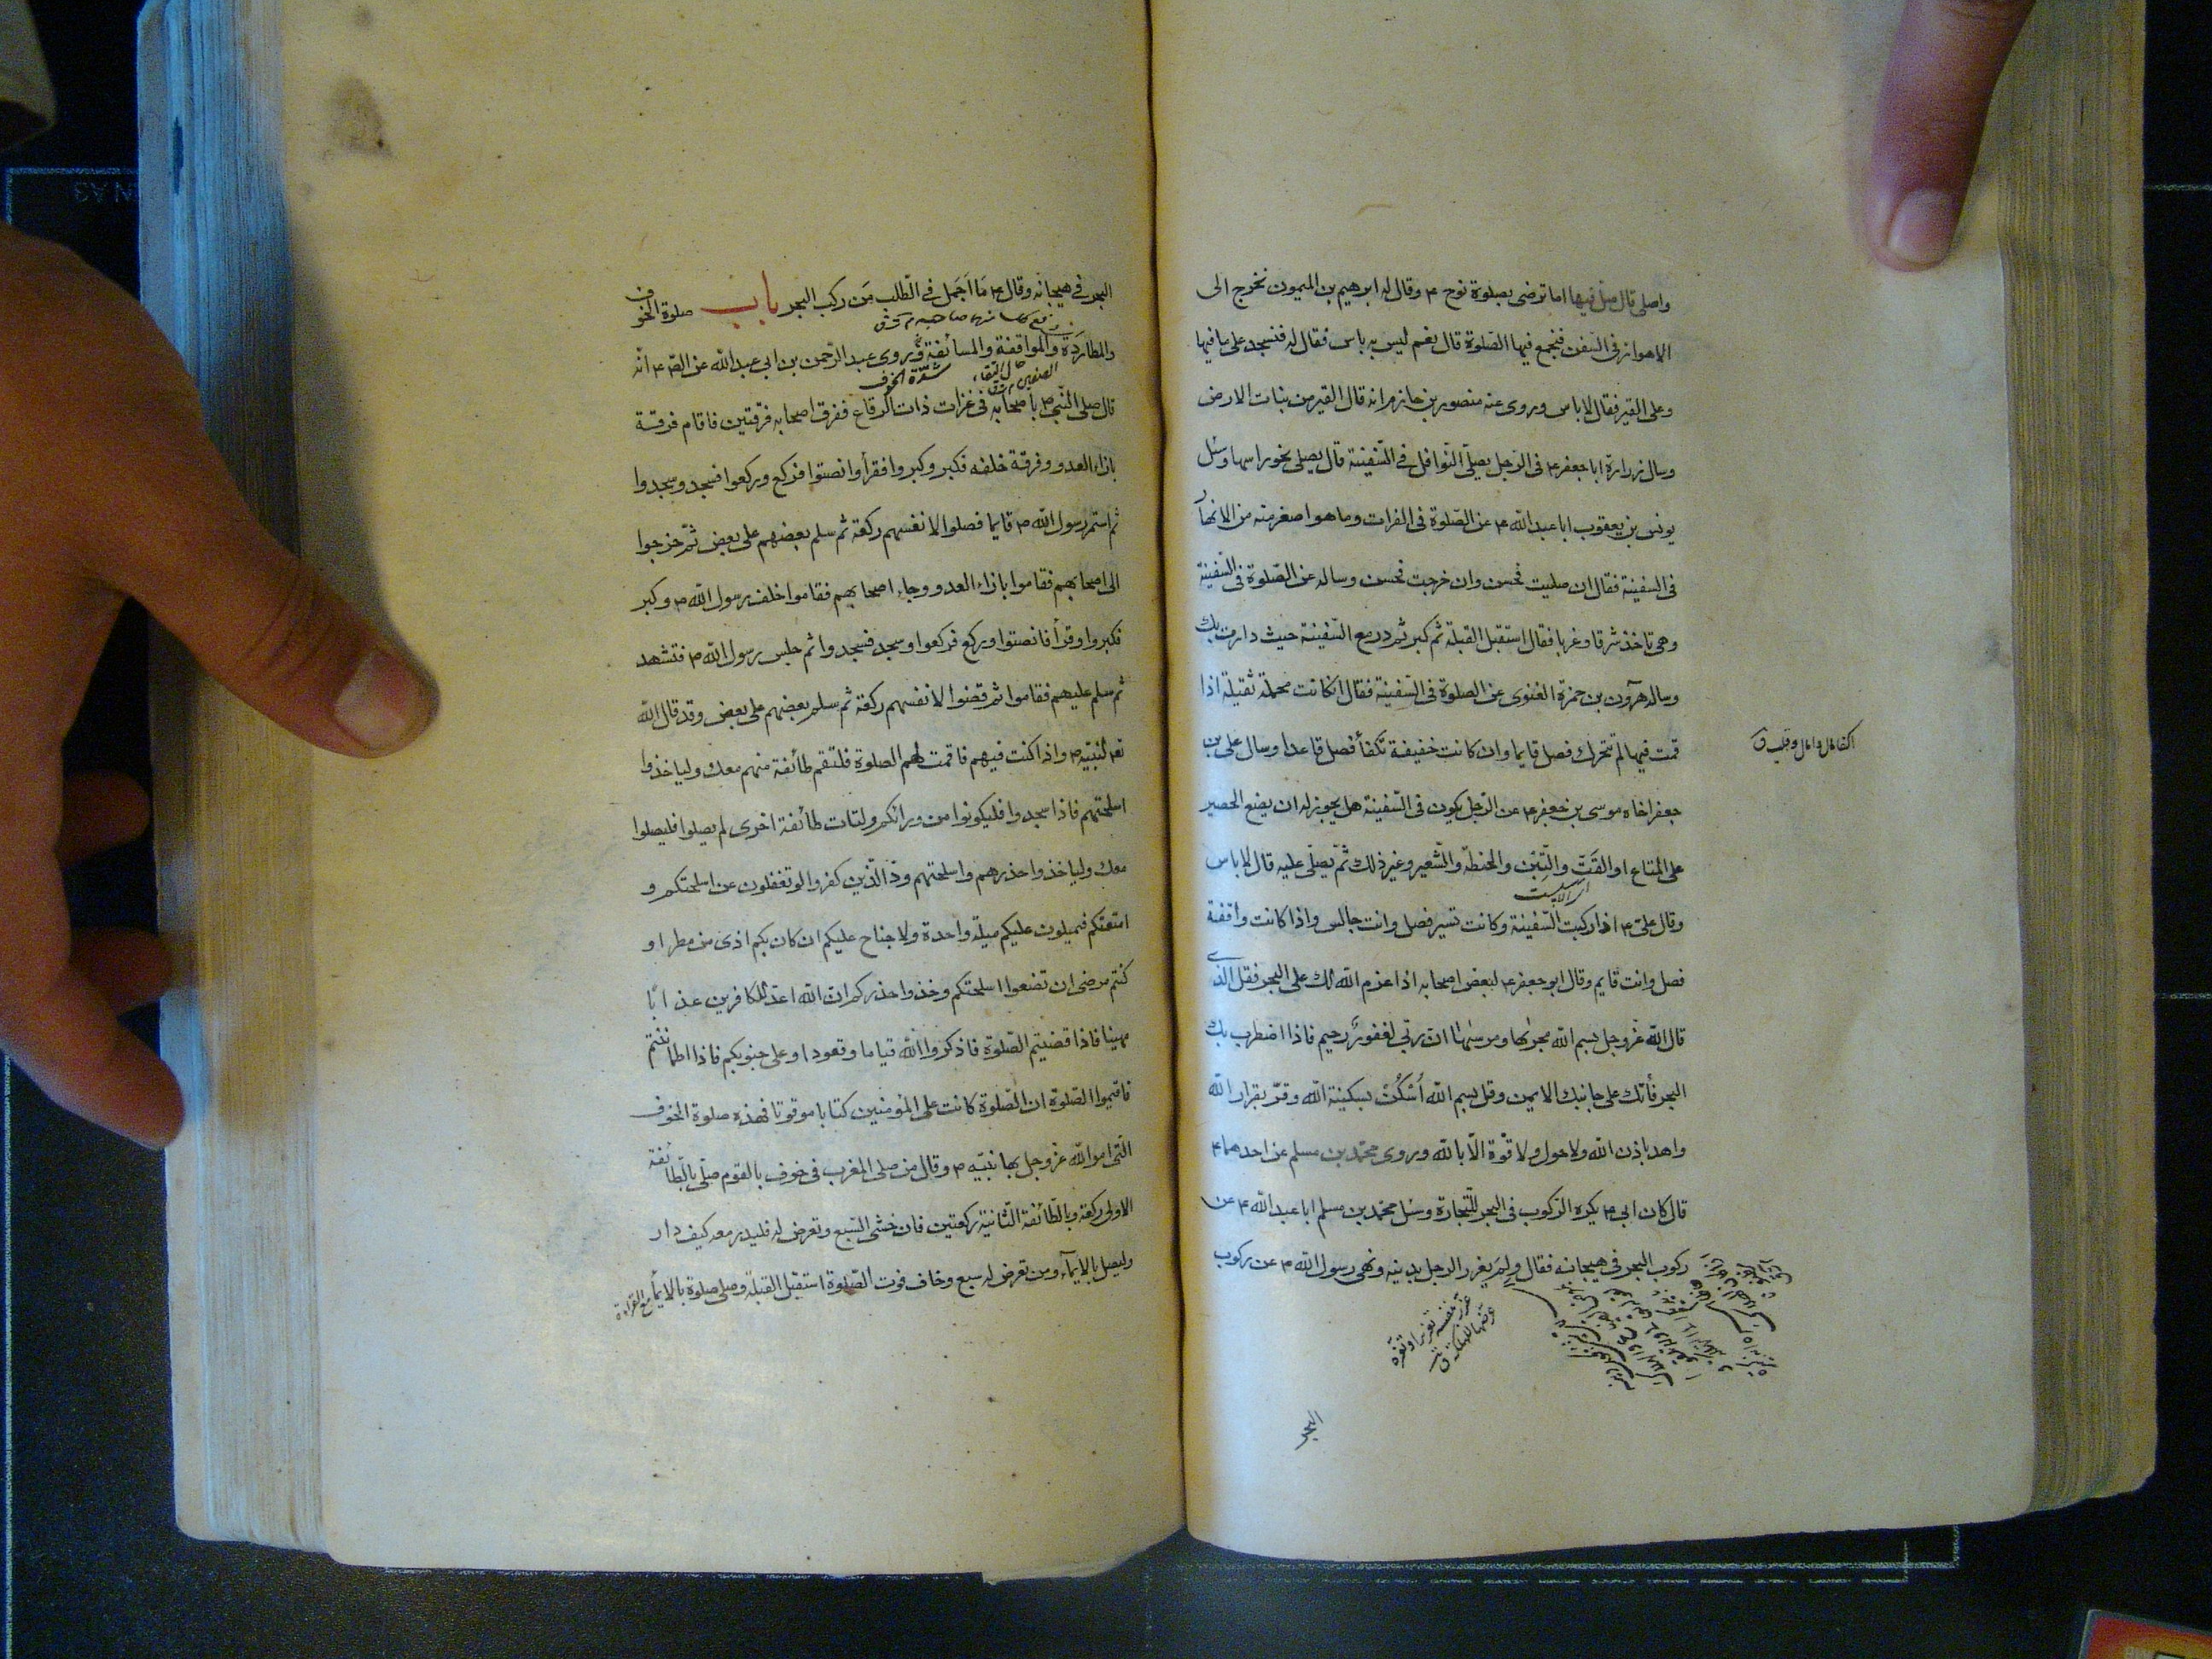 واصلى قال صل فيها اما ترضى بصلوة نوح ع وقال له ابرهيم بن الميمون نخرج الى
الاهواز فى السفن فنجمع فيها الصلوة قال نعم ليس به باس فقال له فنسجد على ما فيها
وعلى القير فقال لا باس وروى عنه منصور بن حازم انه قال القير من بنات الارض
وسال زرارة ابا جعفر ع فى الرجل يصلى النوافل فى السفينة قال يصلى نحو راسها وسئل
يونس بن يعقوب ابا عبدالله ع عن الصلوة فى الفرات وما هو اصغر منه من الانهار
فى السفينة فقال ان صليت فحسن وان خرجت فحسن وساله عن الصلوة فى السفينة
وهى تاخذ شرقا وغربا فقال استقبل القبلة ثم كبر ثم در مع السفينة حيث دارت بك
وساله هرون بن حمزة الغنوى عن الصلوة فى السفينة فقال ان كانت محملة ثقيلة اذا
قمت فيها لم تتحرك فصل قايما وان كانت خفيفة تكفأ فصل قاعدا وسال على بن
جعفر اخاه موسى بن جعفر ع عن الرجل يكون فى السفينة هل يجوز له ان يضع الحصير
على المتاع او القت والتبن والحنطة والشعير وغير ذلك ثم يصلى عليه قال لا باس
وقال على ع اذا ركبت السفينة وكانت تسير فصل وانت جالس واذا كانت واقفة
فصل وانت قايم وقال ابو جعفر ع لبعض اصحابه اذا عزم الله لك على البحر فقل الذى
قال الله عز وجل بسم الله مجريها ومرسيها ان ربى لغفور رحيم فاذا اضطرب بك
البحر فأتك على جانبك الايمن وقل بسم الله اسكن بسكينة الله وقر بقرار الله
واهدا باذن الله ولا حول ولا قوة الا بالله وروى محمد بن مسلم عن احدهما ع
قال كان ابى ع يكره الركوب فى البحر للتجارة وسئل محمد بن مسلم ابا عبدالله ع عن
ركوب البحر فى هيجانه فقال ولم يغرر الرجل بدينه ونهى رسول الله ص عن ركوب
غرر بنفسه تغريرا وتغرة
عرضها للهلكة ق
البحر
البحر فى هيجانه وقال ع ما اجمل فى الطلب من ركب البحر باب صلوة الخوف
والمطاردة والمواقفة والمسائفة وروى عبد الرحمن بن ابى عبدالله عن الص ع انه
شدة الخوف
قال صلى النبى ص باصحابه فى غزات ذات الرقاع ففرق اصحابه فرقتين فاقام فرقة
بازاء العدو وفرقة خلفه فكبر وكبروا فقرأ وانصتوا فركع وركعوا فسجد وسجدوا
ثم استمر رسول الله ص قايما فصلوا لانفسهم ركعة ثم سلم بعضهم على بعض ثم خرجوا
الى اصحابهم فقاموا بازاء العدو وجاء اصحابهم فقاموا خلف رسول الله ص وكبر
فكبروا وقرأ فانصتوا وركع فركعوا وسجد فسجدوا ثم جلس رسول الله ص فتشهد
ثم سلم عليهم فقاموا ثم قضوا لانفسهم ركعة ثم سلم بعضهم على بعض وقد قال الله
تعـ لنبيه ص واذا كنت فيهم فاقمت لهم الصلوة فلتقم طائفة منهم معك ولياخذوا
اسلحتهم فاذا سجدوا فليكونوا من ورائكم ولتات طائفة اخرى لم يصلوا فليصلوا
معك ولياخذوا حذرهم واسلحتهم ود الذين كفروا لو تغفلون عن اسلحتكم و
امتعتكم فيميلون عليكم ميلة واحدة ولا جناح عليكم ان كان بكم اذى من مطر او
كنتم مرضى ان تضعوا اسلحتكم وخذوا حذركم ان الله اعد للكافرين عذابا
مهينا فاذا قضيتم الصلوة فاذكروا الله قياما وقعودا وعلى جنوبكم فاذا اطماننتم
فاقيموا الصلوة ان الصلوة كانت على المؤمنين كتابا موقوتا فهذه صلوة الخوف
التى امر الله عز وجل بها نبيه ص وقال من صلى المغرب فى خوف بالقوم صلى بالطائفة
الاولى ركعة وبالطائفة الثانية ركعتين فان خشى السبع وتعرض له فليدر معه كيف دار
وليصل بالايماء ومن تعرض له سبع وخاف فوت الصلوة استقبل القبلة وصلى صلوة بالايماء مع القراءة